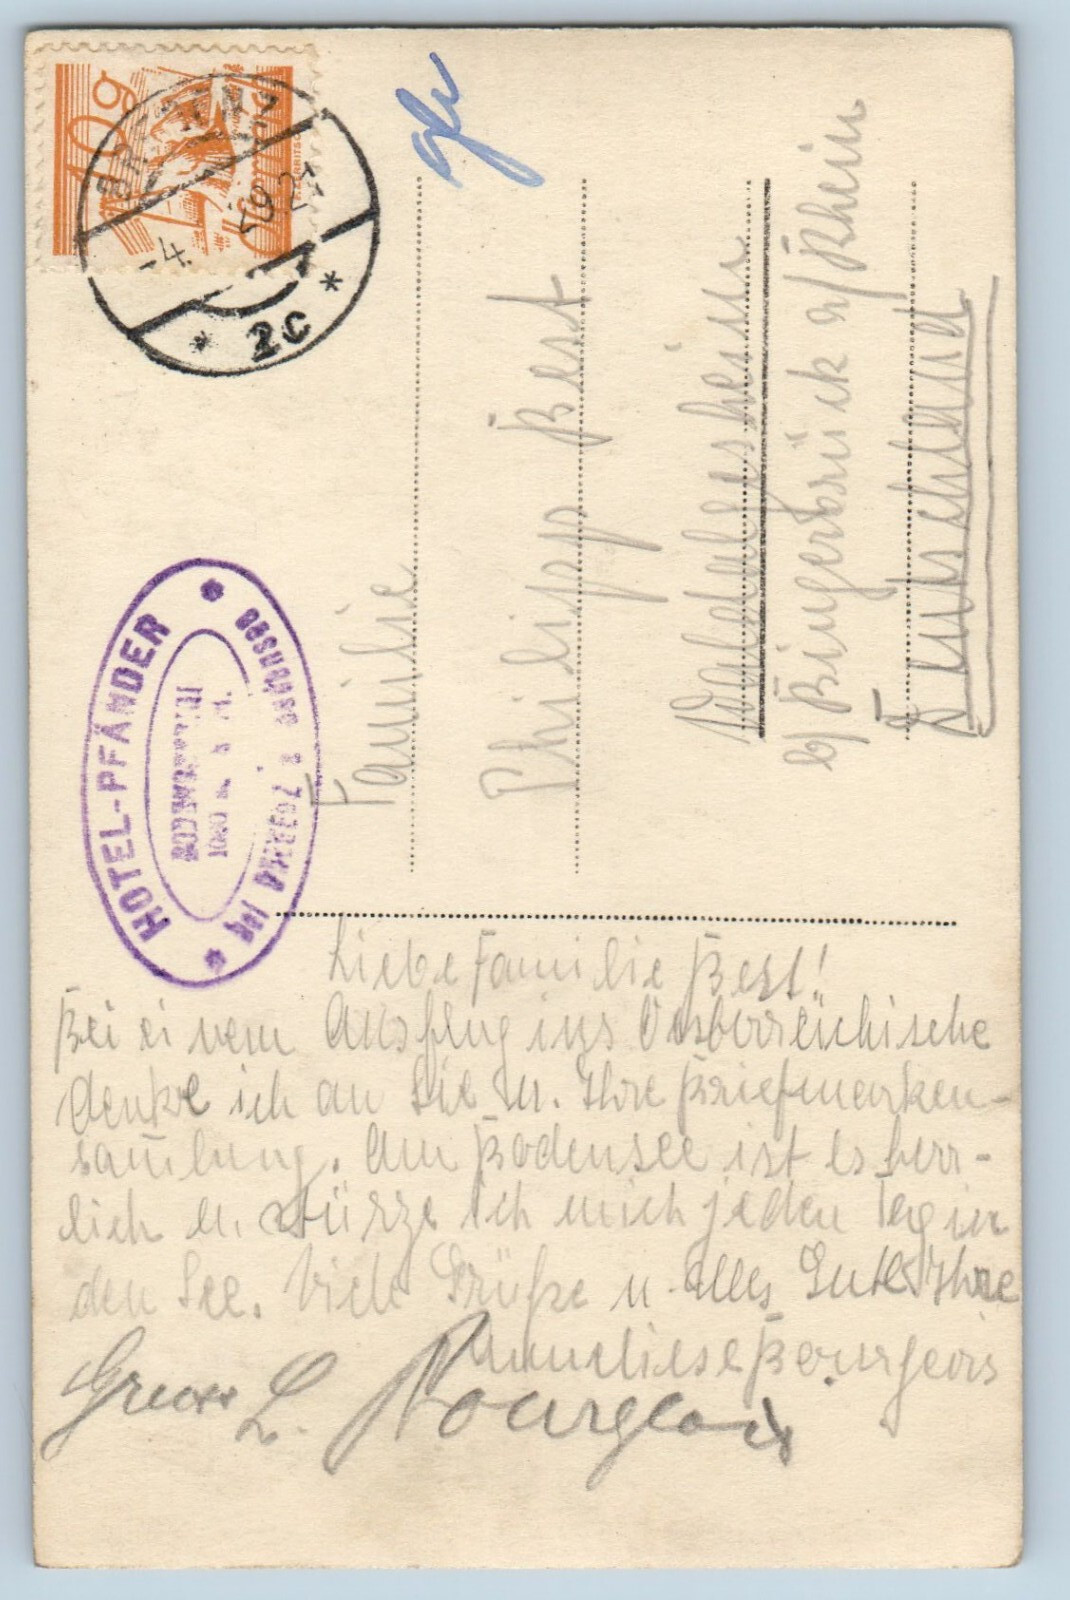 10g
BREGENZ
-4.
2c
gu
HOTEL-PFÄNDER
bei BREGENZ a. BODENSEE
Familie
Philipp Best
Waldalgesheim
b/ Bingerbrück a/Rhein
Deutschland
Liebe Familie Best!
Bei einem Ausflug ins Österreichische
denke ich an Sie u. Ihre Briefmarken-
sammlung. Am Bodensee ist es herr-
lich u. stürze ich mich jeden Tag in
den See. Viele Grüße u. alles Gute Ihre
Anneliese Bourgeois
Gruss L. Bourgeois